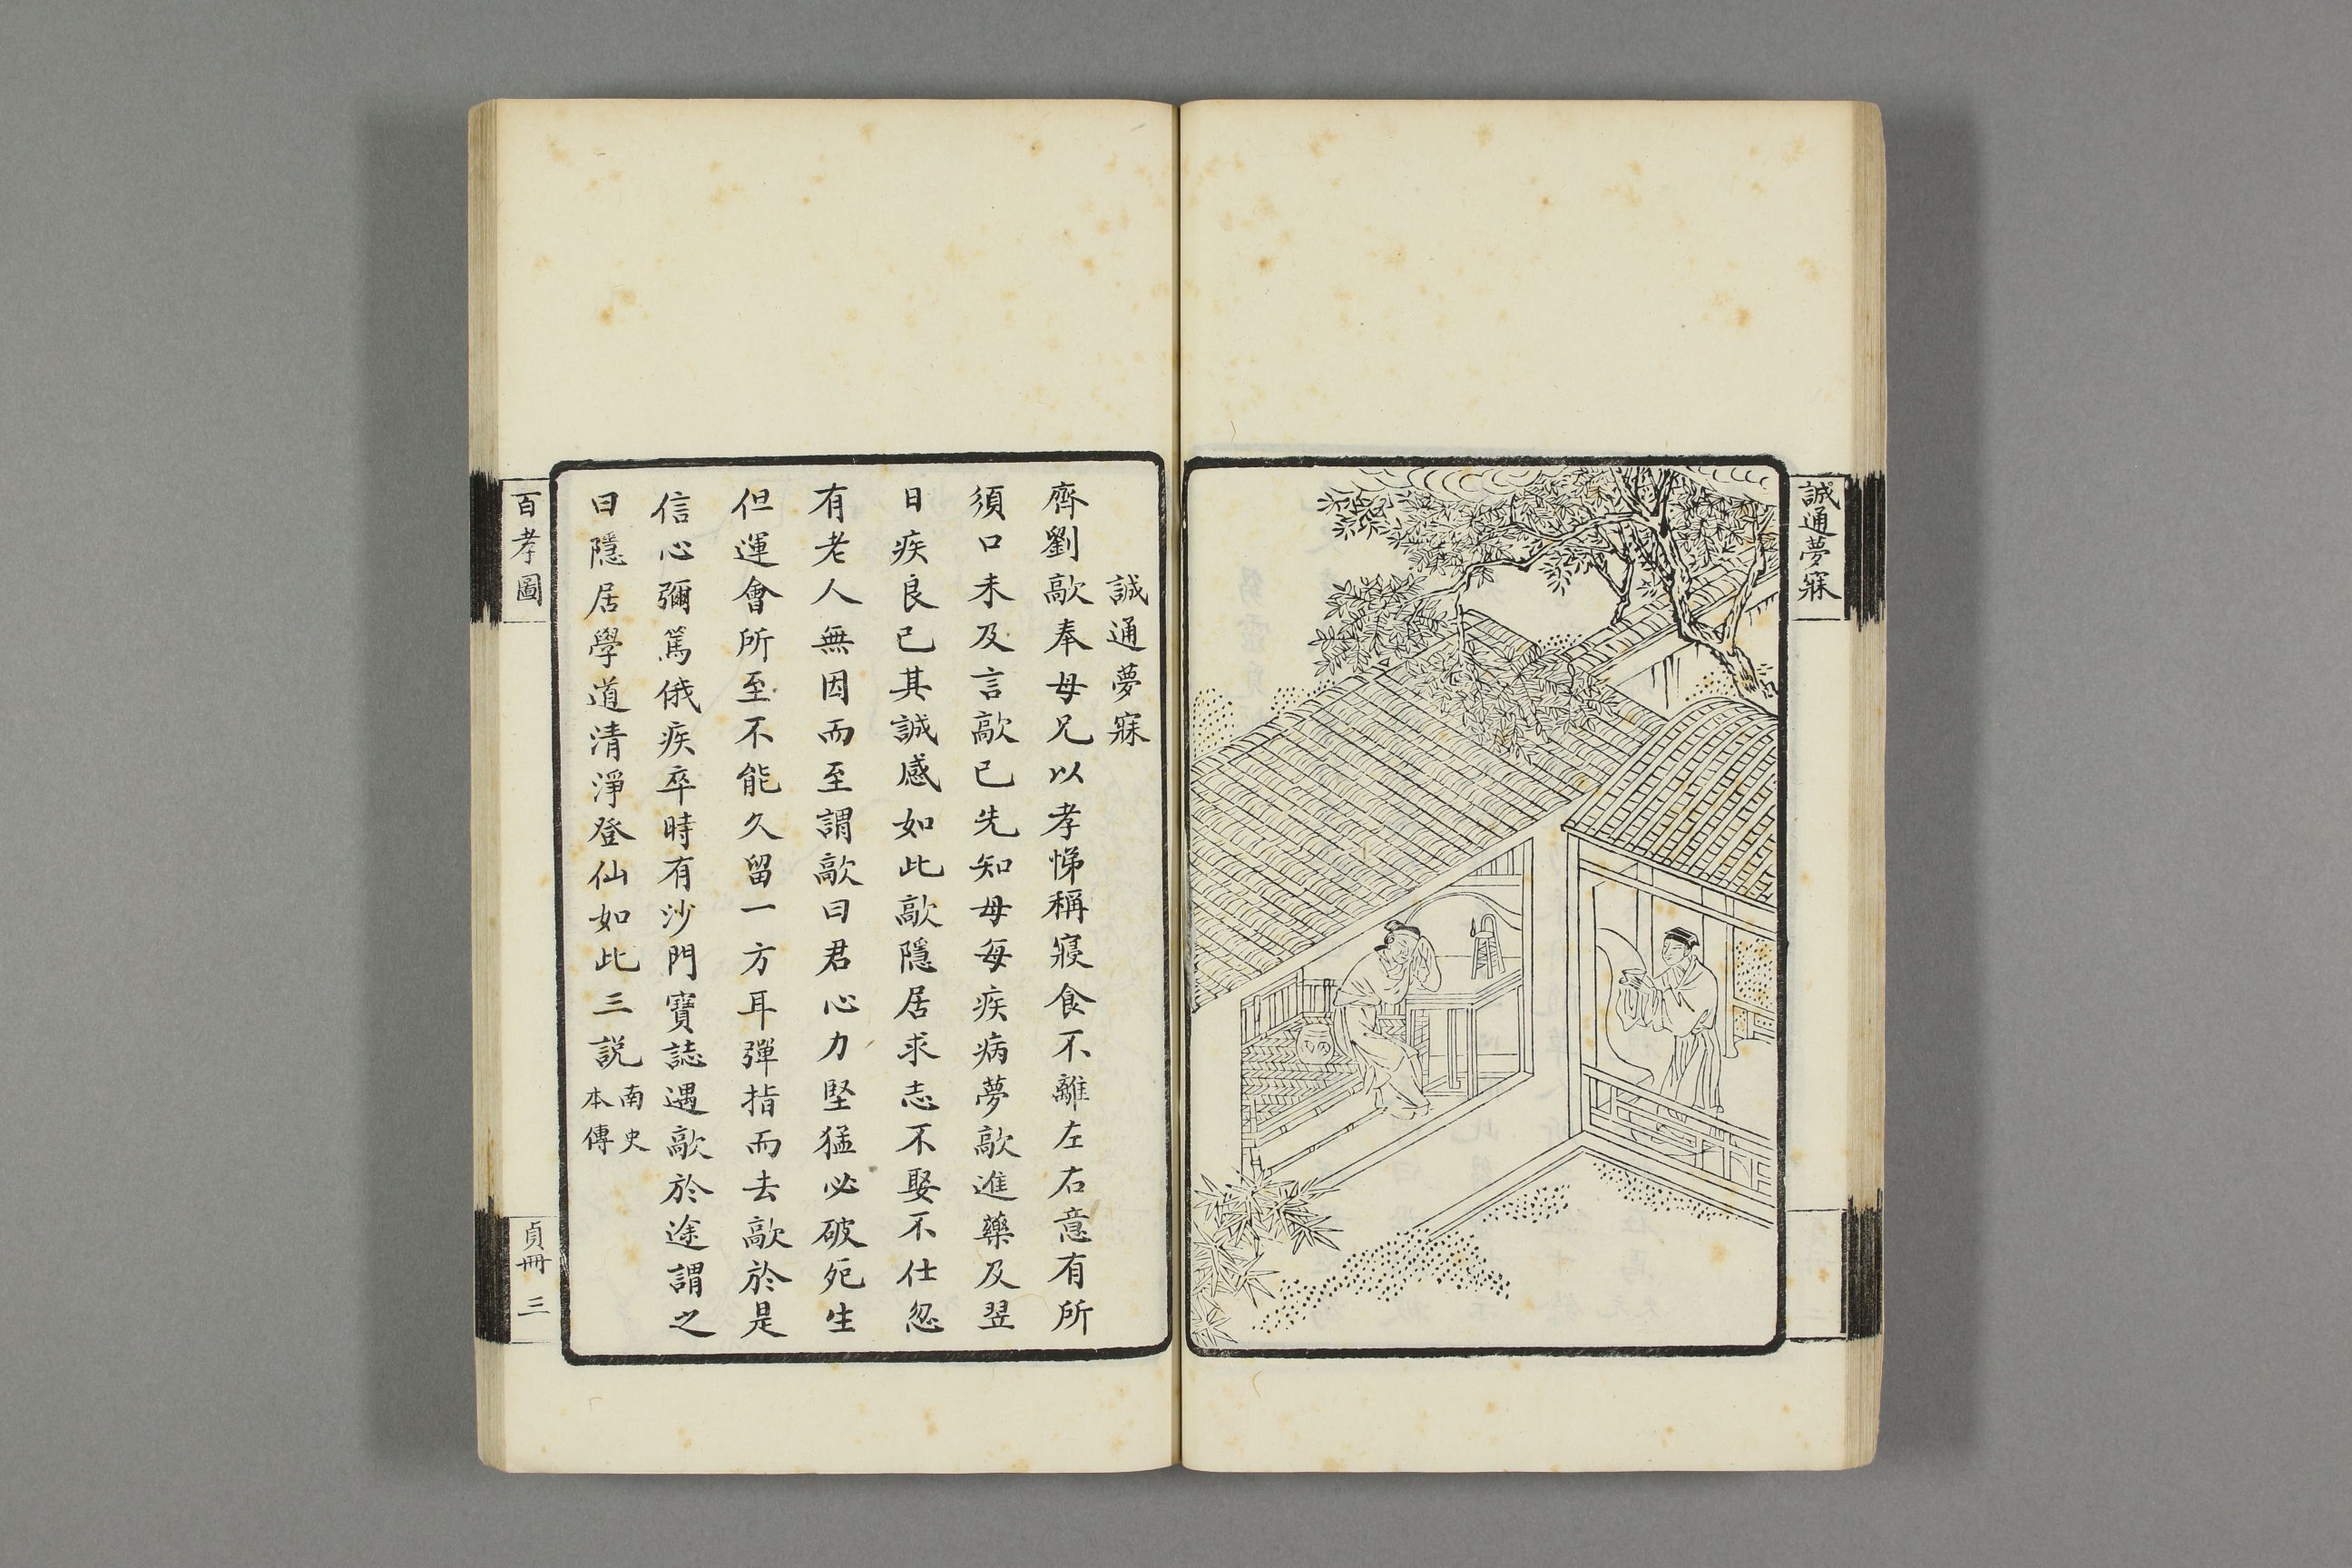 誠通夢寐
誠通夢寐
齊劉歊奉母兄以孝悌稱寢食不離左右意有所
須口未及言歊已先知母每疾病夢歊進藥及翌
日疾良已其誠感如此歊隱居求志不娶不仕忽
有老人無因而至謂歊曰君心力堅猛必破死生
但運會所至不能久留一方耳彈指而去歊於是
信心彌篤俄疾卒時有沙門寶誌遇歊於途謂之
曰隱居學道清淨登仙如此三説
南史
本傳
百孝圖
貞冊 三